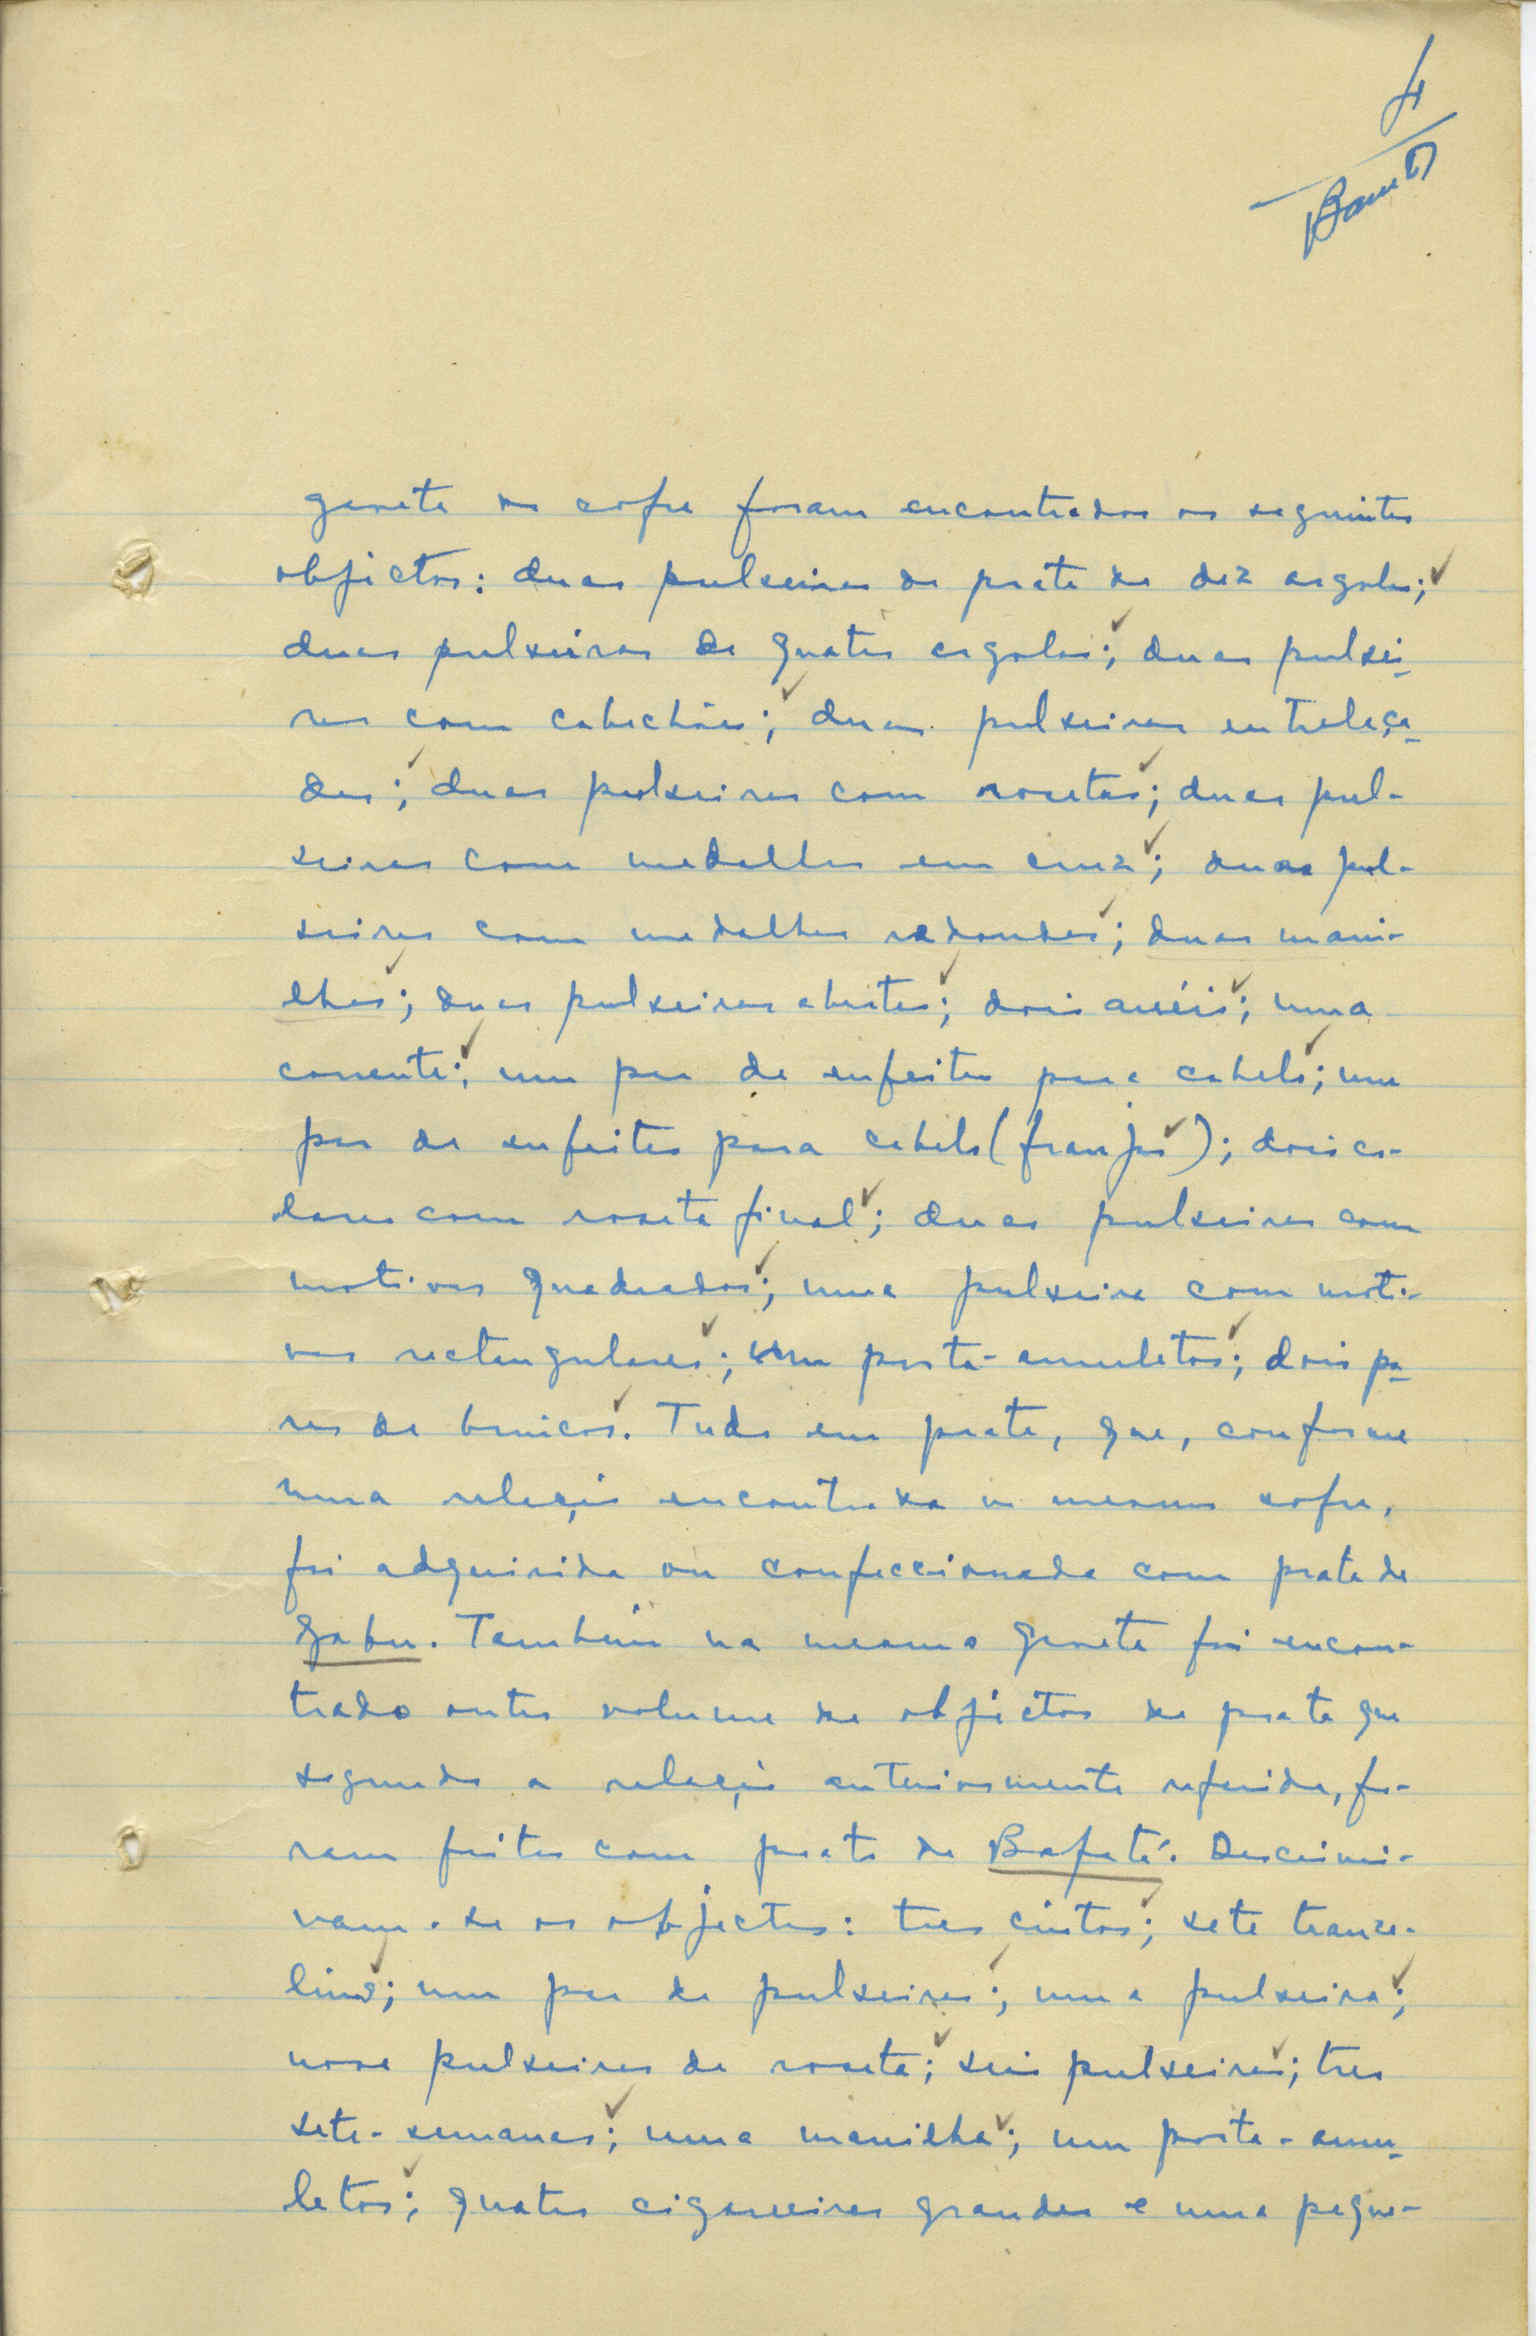 4
gaveta do cofre foram encontrados os seguintes
objectos: duas pulseiras de prata de dez argolas;
duas pulseiras de quatro argolas; duas pulsei-
ras com cabochões; duas pulseiras entrelaça-
das; duas pulseiras com rosetas; duas pul-
seiras com medalhas em cruz; duas pul-
seiras com medalhas redondas; duas mani-
lhas; duas pulseiras abertas; dois anéis; uma
corrente; um par de enfeites para cabelo; um
par de enfeites para cabelo (franja); dois co-
lares com roseta final; duas pulseiras com
motivos quadrados; uma pulseira com moti-
vos rectangulares; um porta-amuletos; dois pa-
res de brincos. Tudo em prata, que, conforme
uma relação encontrada no mesmo cofre,
foi adquirida ou confeccionada com prata de
Gabu. Também na mesma gaveta foi encon-
trado outro volume de objectos de prata que
segundo a relação anteriormente referida, fo-
ram feitos com prata de Bafatá. Descrimi-
nam-se os objectos: tres cintos; sete trance-
lins; um par de pulseiras; uma pulseira;
nove pulseiras de roseta; seis pulseiras; tres
sete-semanas; uma manilha; um porta-amu-
letos; quatro cigarreiras grandes e uma peque-